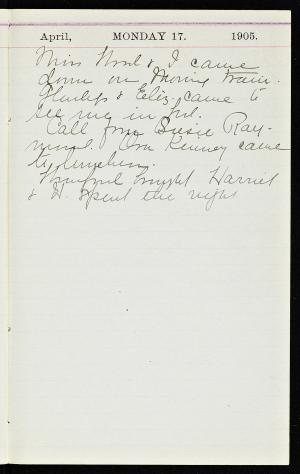 April, MONDAY 17. 1905.
Miss & I came
down on Morning train.
Gladys & Eliz. came to
see me in
Call from Susie Ray-
mond. Ora Kenney came
to luncheon.
brought Harriet
& spent the night